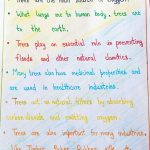 • Trees are the main source of oxygen.
• What lungs are to human body, trees are
to the earth.
• Trees play an essential role in preventing
floods and other natural calamities.
• Many trees also have medicinal properties and
are used in healthcare industries.
• Trees act as natural filters by absorbing
carbon dioxide and emitting oxygen.
• Trees are also important for many industries
like Timber, Paper, Rubber, silk